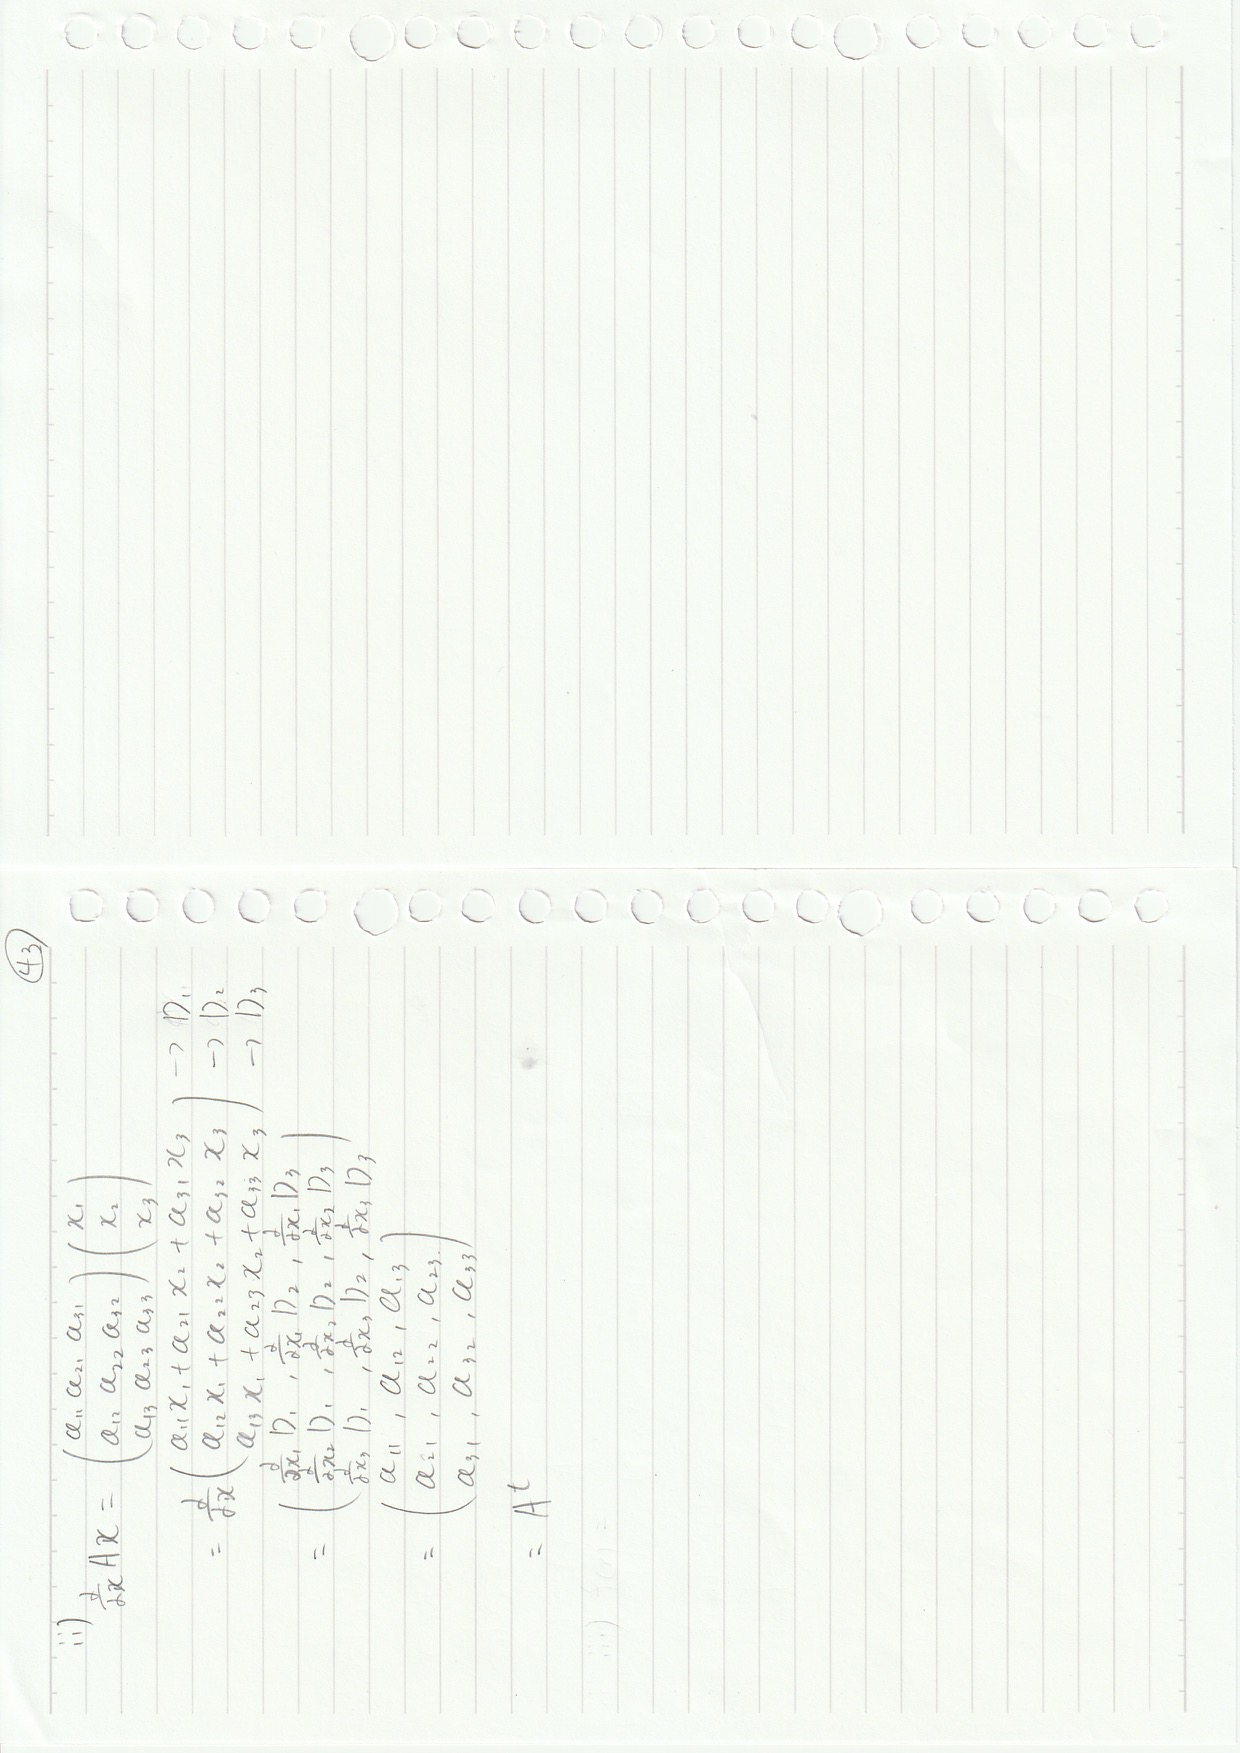 43
ii)
∂/∂x Ax = ( a₁₁ a₂₁ a₃₁ ) ( x₁ )
( a₁₂ a₂₂ a₃₂ ) ( x₂ )
( a₁₃ a₂₃ a₃₃ ) ( x₃ )
( a₁₁x₁ + a₂₁x₂ + a₃₁x₃ ) → D₁
= ∂/∂x ( a₁₂x₁ + a₂₂x₂ + a₃₂x₃ ) → D₂
( a₁₃x₁ + a₂₃x₂ + a₃₃x₃ ) → D₃
( ∂/∂x₁ D₁ , ∂/∂x₁ D₂ , ∂/∂x₁ D₃ )
= ( ∂/∂x₂ D₁ , ∂/∂x₂ D₂ , ∂/∂x₂ D₃ )
( ∂/∂x₃ D₁ , ∂/∂x₃ D₂ , ∂/∂x₃ D₃ )
( a₁₁ , a₁₂ , a₁₃ )
= ( a₂₁ , a₂₂ , a₂₃ )
( a₃₁ , a₃₂ , a₃₃ )
= Aᵗ
iii)